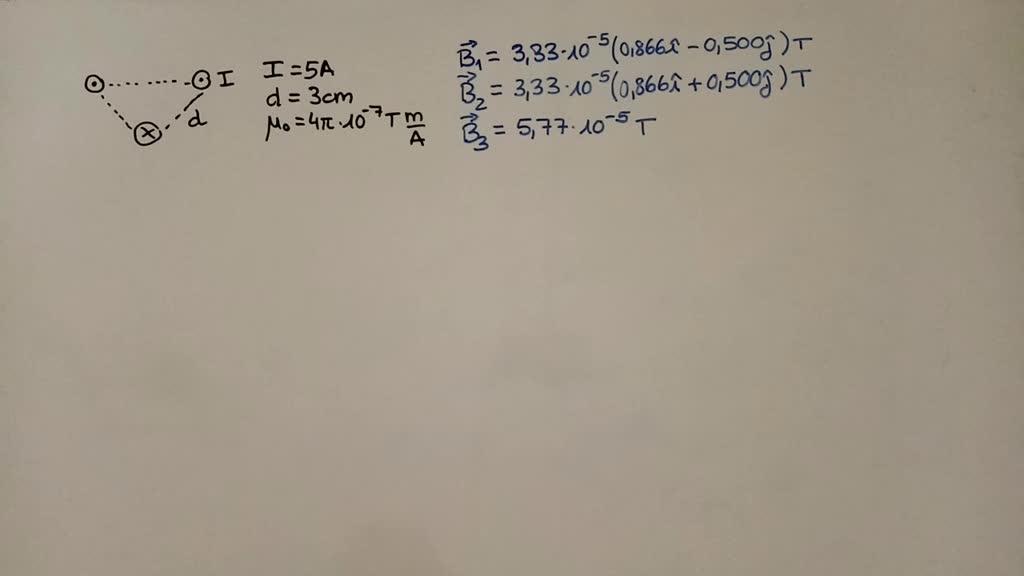 I
d
I = 5A
d = 3cm
μ₀ = 4π·10⁻⁷ T m/A
B⃗₁ = 3,33·10⁻⁵(0,866î − 0,500ĵ) T
B⃗₂ = 3,33·10⁻⁵(0,866î + 0,500ĵ) T
B⃗₃ = 5,77·10⁻⁵ T